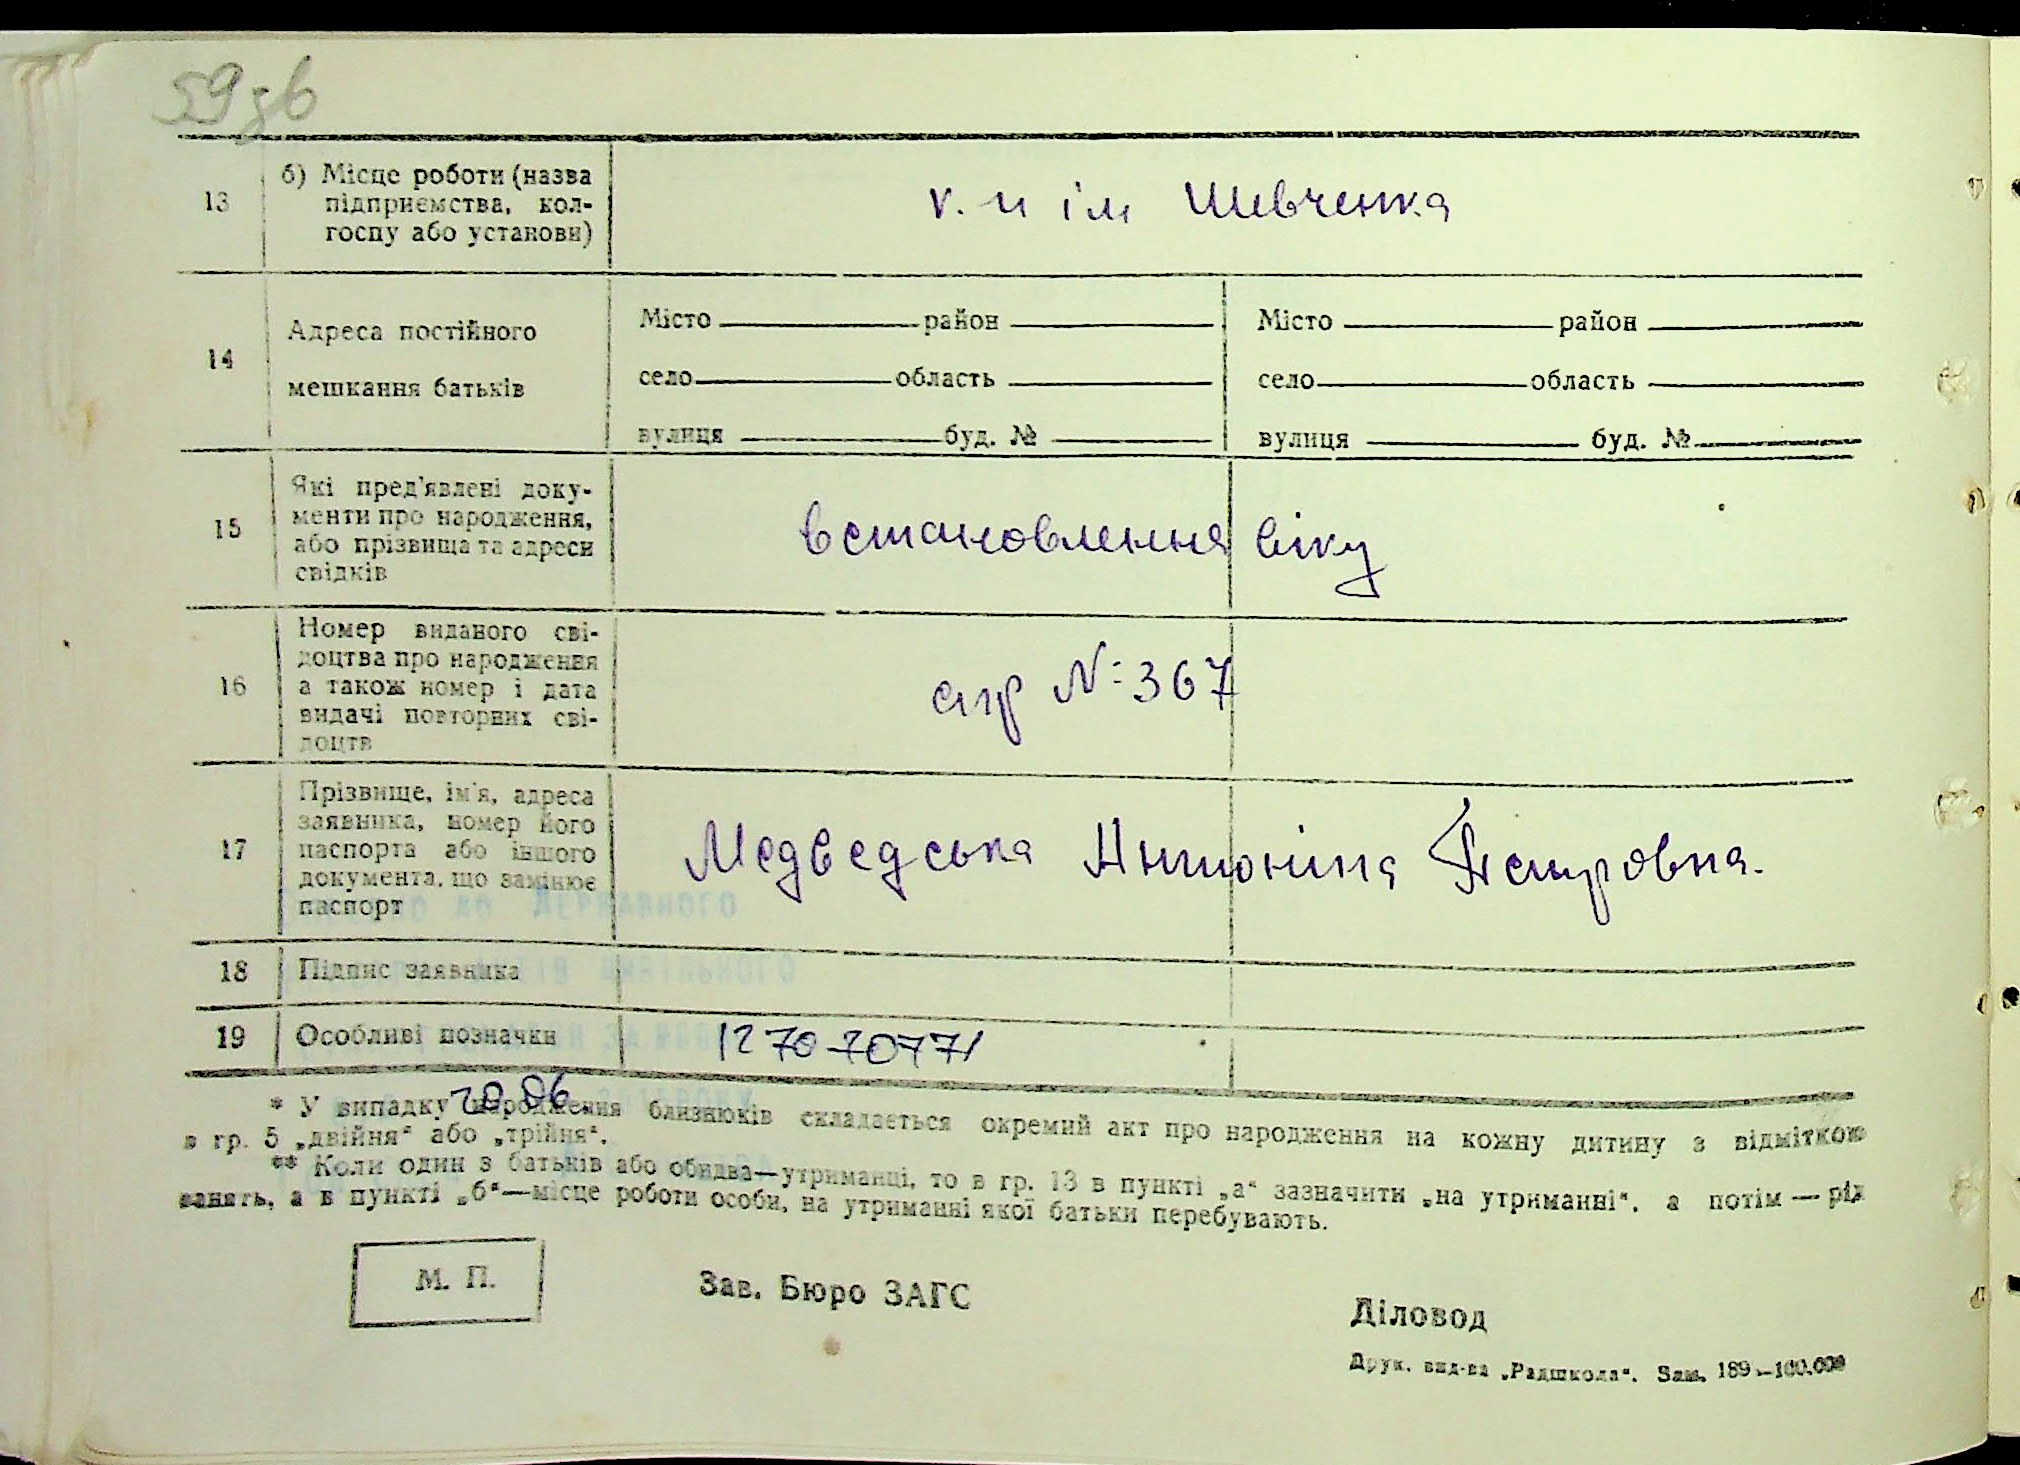 59 зв
13
б) Місце роботи (назва
підприємства, кол-
госпу або установи)
к. и ім Шевченка
14
Адреса постійного
мешкання батьків
Місто район
село область
вулиця буд. №
Місто район
село область
вулиця буд. №
15
Які пред'явлені доку-
менти про народження,
або прізвища та адреси
свідків
встановлення віку
16
Номер виданого сві-
доцтва про народження
а також номер і дата
видачі повторних сві-
доцтв
апр №367
17
Прізвище, ім'я, адреса
заявника, номер його
паспорта або іншого
документа, що замінює
паспорт
Медведська Антоніна Петровна.
18
Підпис заявника
19
Особливі позначки
127070771
20.06.
* У випадку народження близнюків складається окремий акт про народження на кожну дитину з відміткою
в гр. 5 „двійня“ або „трійня“.
** Коли один з батьків або обидва—утриманці, то в гр. 13 в пункті „а“ зазначити „на утриманні“, а потім — рід
занять, а в пункті „б“—місце роботи особи, на утриманні якої батьки перебувають.
М. П.
Зав. Бюро ЗАГС
Діловод
Друк. вид-ва „Радшкола“. Зам. 189—100.000